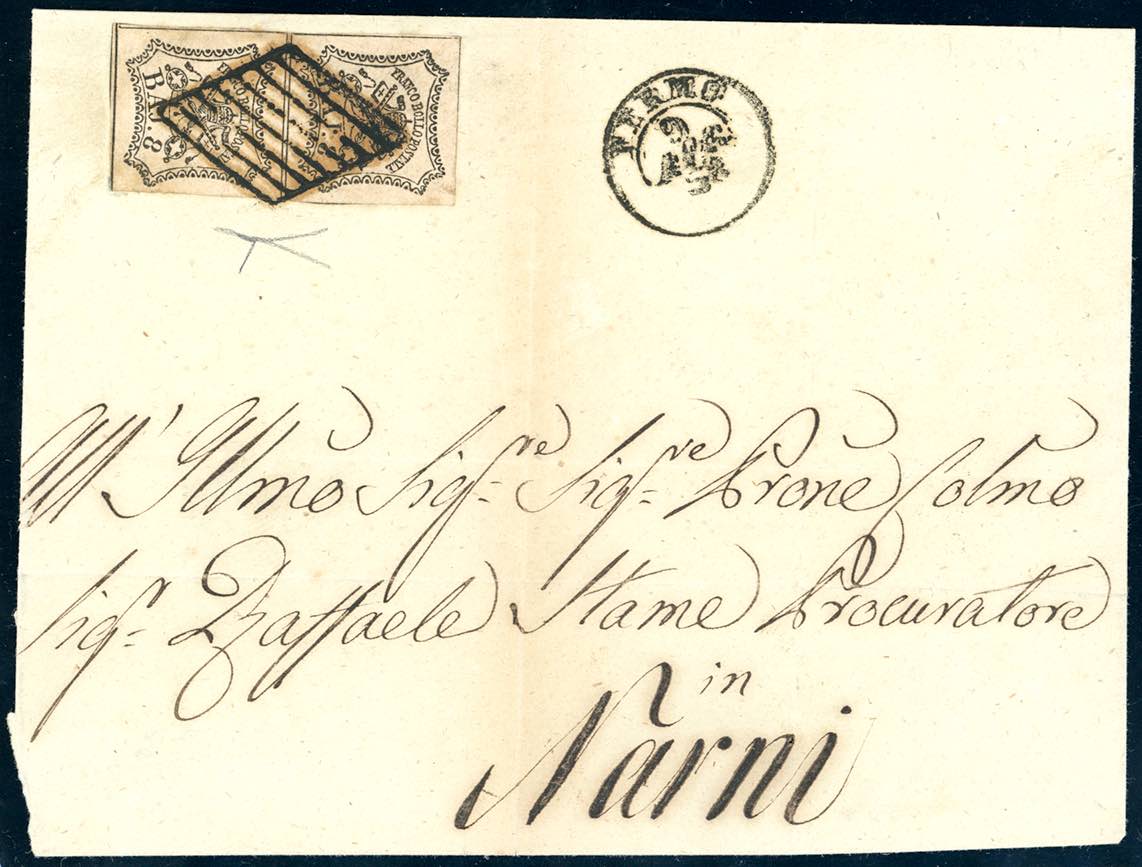 BAJ. 8
FRANCO BOLLO POSTALE
FERMO
All' Illmo Sig.re Sig.re Prone Colmo
Sig.r Raffaele Stame Procuratore
in
Narni